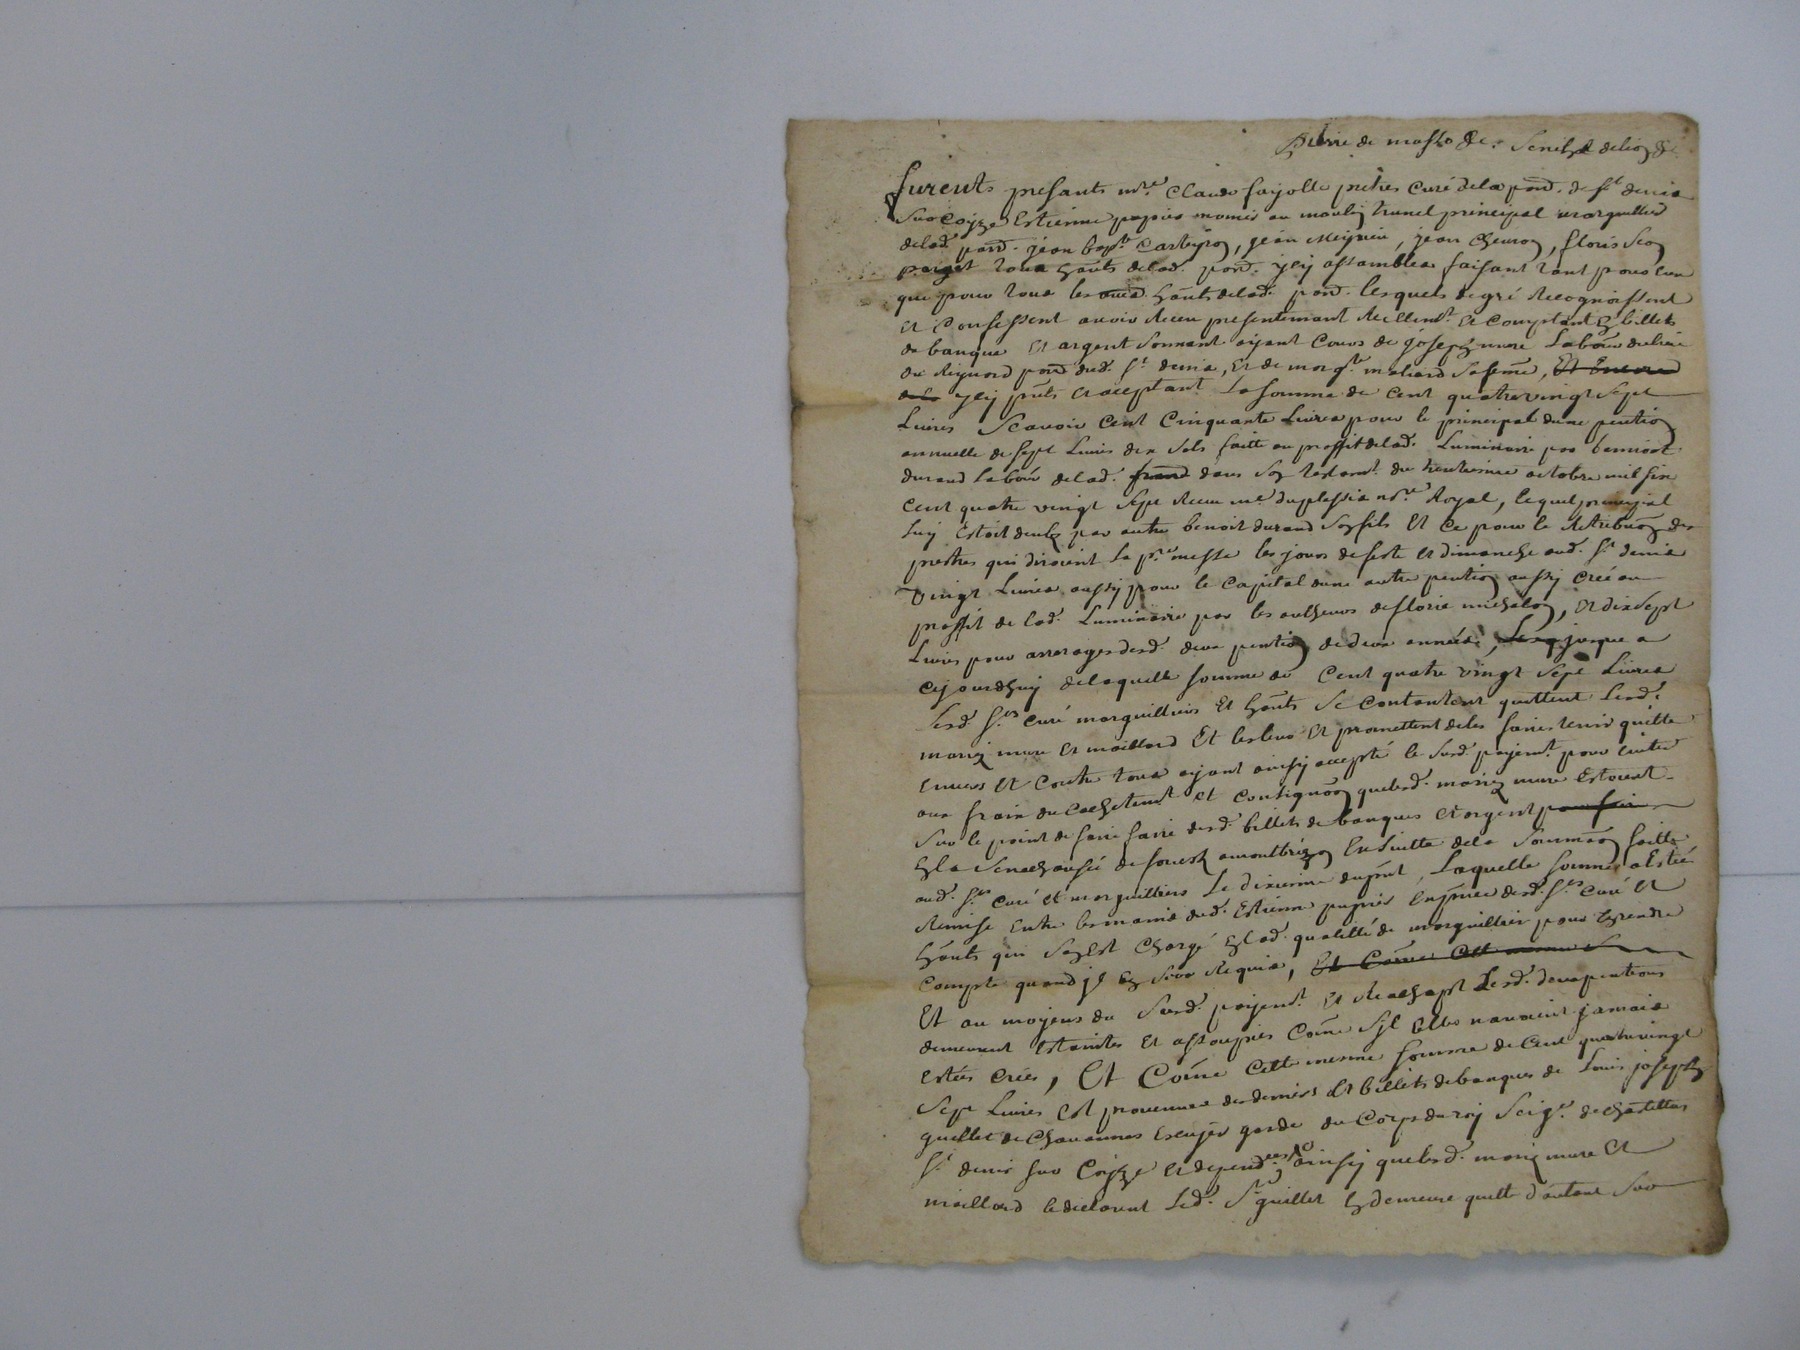 pierre de masso &c. Senchal de lion &c.
furents presants mre. Claude fayolle pretres curé dela parr. de st denis
sur Coyze Estienne papier momié au moulin Trunel principal marguillier
delad. parr. jean bapte. Carteyron, jean Meynieu, jean Chevron, floris
poiget tous hants delad. parr. yci assambles faisant tant pour eux
que pour tous les autres hants delad. parr. lesquels de gré Recognoissent
et Confessent avoir Receu presentemant Reellemt. et Comptant en billets
de banque et argent Sonnant ayant Cours de joseph mure Labour. du lieu
de Reynard parr. dud. st denis, et de margte. maliard sa feme, Et Encore
yci pnts et acceptant La somme de Cent quatre vingt sept
Livres Scavoir Cent Cinquante Livres pour le principal dune pention
annuelle de sept Livres dix sols faitte au proffit delad. Luminaire par bennoit
durand Labour delad. parr. dans son testamt. du trentiesme octobre mil six
Cent quatre vingt sept Receu me duplessis nore. Royal, lequel principal
luy Estoit deub par autre benoit durand son fils Et Ce pour la Retribuon des
prestres qui diroient la pre. messe les jours de feste et dimanche aud. st denis
Vingt Livres aussy pour le Capital dune autre pention aussy Creé au
proffit de lad. Luminaire par les autheurs de floris michalon, et dix sept
Livres pour arrerages desd. deux pention de deux années, jusque a
Cejourdhuy delaquelle somme de Cent quatre vingt sept Livres
Lesd. srs Curé marguilliers Et hants Se Contantent quittent Lesd.
mariez mure et maillard Et les leur Et promettent de les faire tenir quitte
Envers et Contre tous ayant ainsy accepté le susd. payemt. pour Eviter
aux frais du Cachetemt et Consignaon quelesd. mariez mure Estoient
sur le point de faire faire desd. billets de banques et argent pour faire
En la Senechaussée de forest a montbrizon En suitte de la Sommaon faitte
aud. srs Curé et marguilliers Le dixieme du pnt, Laquelle somme a Esté
Remise Entre les mains dud. Estienne papier En pnce desd. srs Curé et
hants qui sen Est Chargé En lad. qualitté de marguillier pour En rendre
Compte quand jl En Sera Requis, Et Come Cette mesme S
Et au moyens du Susd. payemt. et Reachapt Lesd. deux pentions
demeurent Estaintes Et assoupies Come Sy Elles navoient jamais
Estées Crées, Et Come Cette mesme somme de Cent quatre vingt
Sept Livres Est provenue des deniers Et billets de banques de Louis joseph
guillet de Chavannes Escuyer garde du Corps du roy Seigr. de Chastellus
st denis sur Coyze et dependces. ainsy quelesd. mariez mure Et
maillard le declarent Led. sr guillet En demeure quitt d'autant Sur